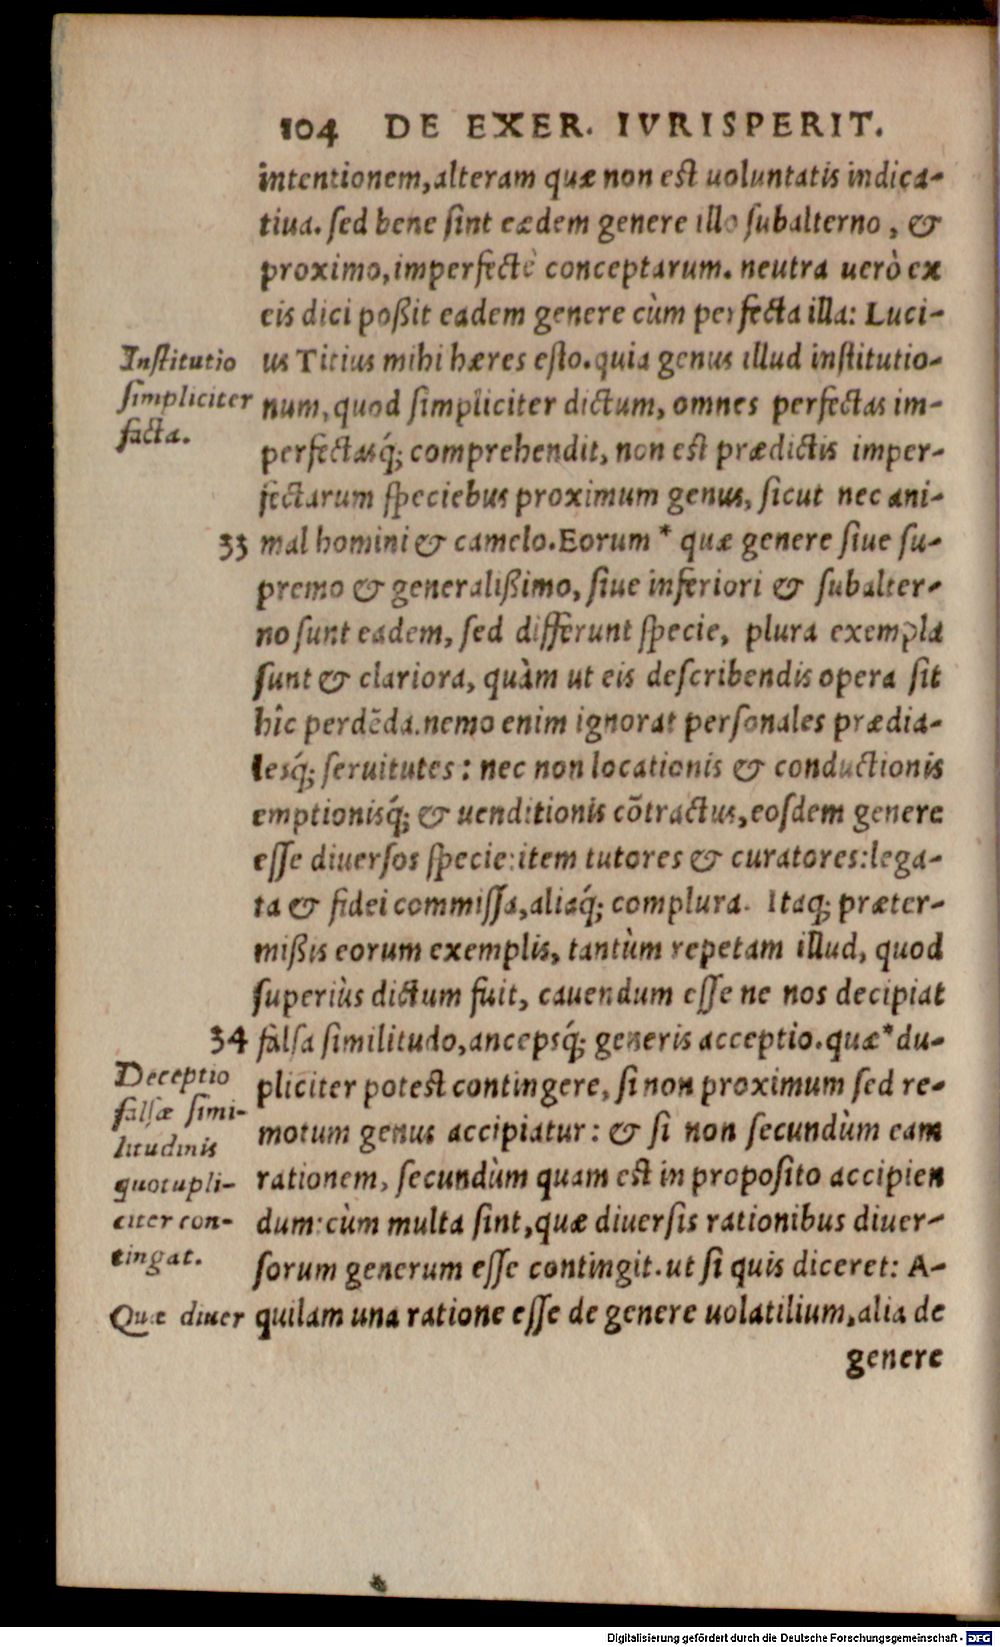 104 DE EXER. IVRISPERIT.
intentionem, alteram quæ non est uoluntatis indica-
tiua. sed bene sint eædem genere illo subalterno, &
proximo, imperfectè conceptarum. neutra uerò ex
eis dici poßit eadem genere cùm perfecta illa: Luci-
Institutio
simpliciter
facta.
us Titius mihi hæres esto. quia genus illud institutio-
num, quod simpliciter dictum, omnes perfectas im-
perfectasq́; comprehendit, non est prædictis imper-
fectarum speciebus proximum genus, sicut nec ani-
33 mal homini & camelo. Eorum * quæ genere siue su-
premo & generalißimo, siue inferiori & subalter-
no sunt eadem, sed differunt specie, plura exempla
sunt & clariora, quàm ut eis describendis opera sit
hîc perdēda. nemo enim ignorat personales prædia-
lesq́; seruitutes: nec non locationis & conductionis
emptionisq́; & uenditionis cōtractus, eosdem genere
esse diuersos specie: item tutores & curatores: lega-
ta & fidei commissa, aliaq́; complura. Itaq; præter-
mißis eorum exemplis, tantùm repetam illud, quod
superiùs dictum fuit, cauendum esse ne nos decipiat
34 falsa similitudo, ancepsq́; generis acceptio. quæ * du-
Deceptio
falsæ simi-
litudinis
quotupli-
citer con-
tingat.
pliciter potest contingere, si non proximum sed re-
motum genus accipiatur: & si non secundùm eam
rationem, secundùm quam est in proposito accipien
dum: cùm multa sint, quæ diuersis rationibus diuer-
sorum generum esse contingit. ut si quis diceret: A-
Quæ diuer
quilam una ratione esse de genere uolatilium, alia de
genere
Digitalisierung gefördert durch die Deutsche Forschungsgemeinschaft - DFG